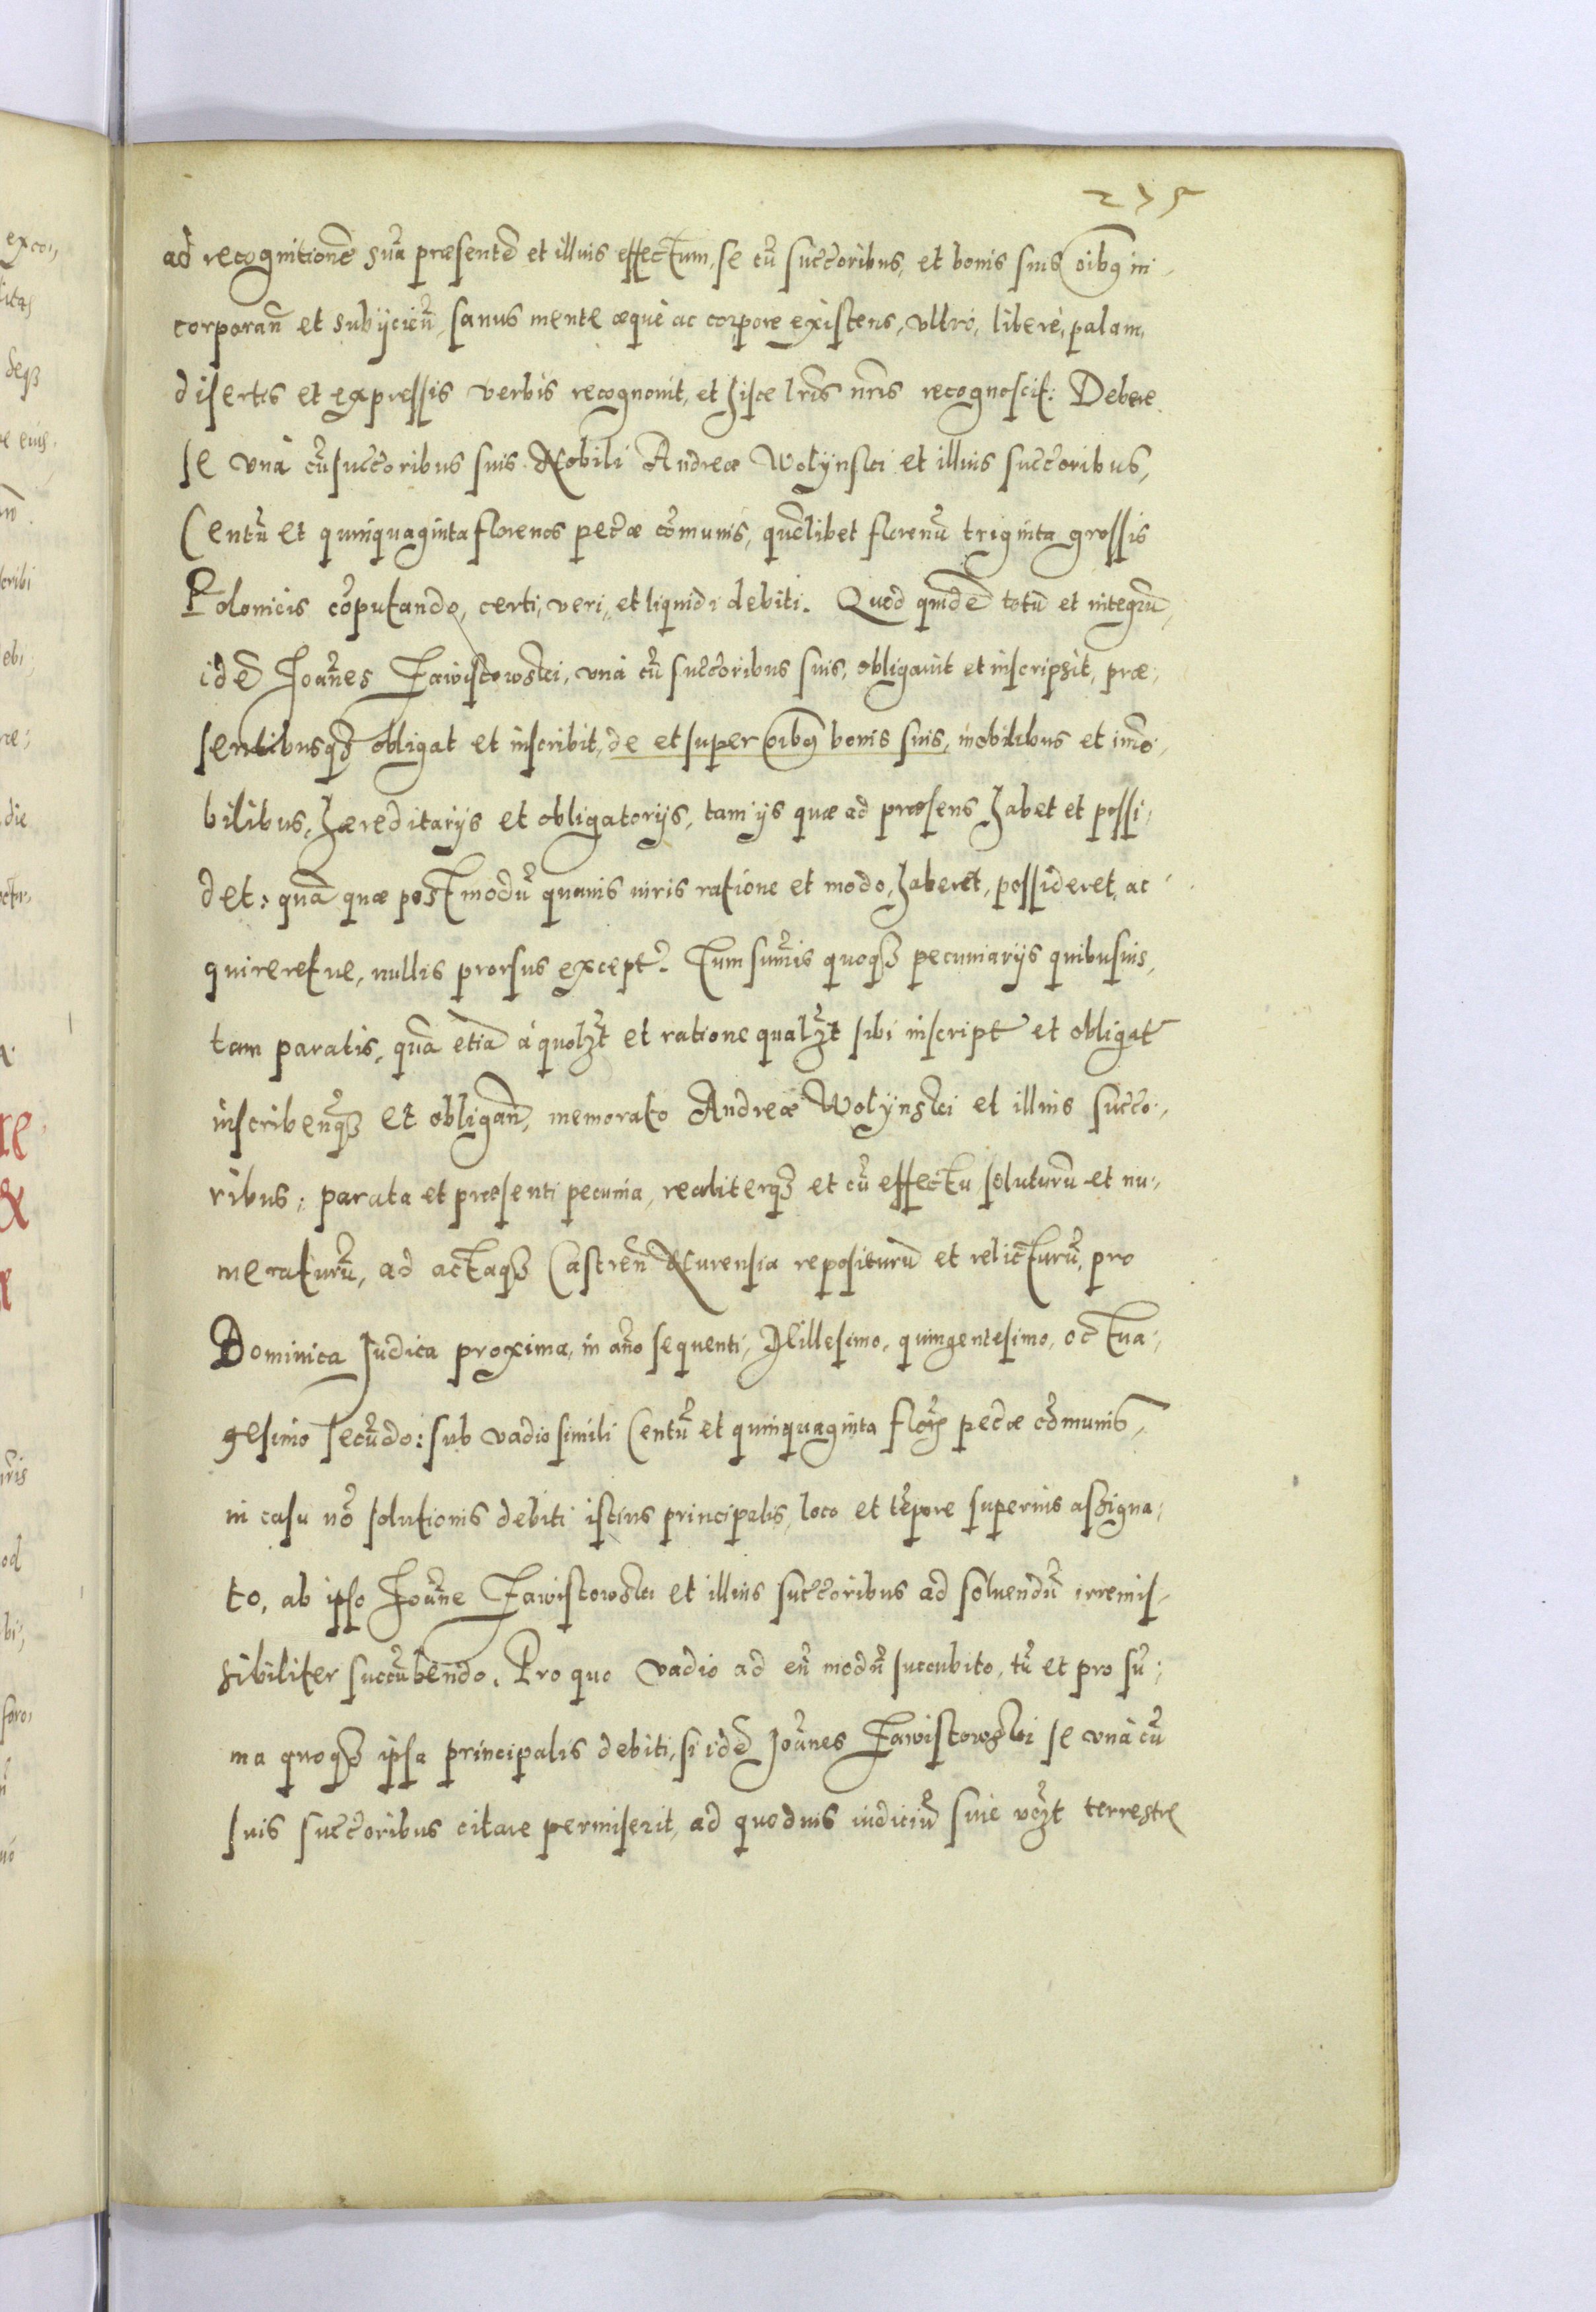 235
ad recognitionē suā præsentē et illius effectum, se cū succoribus, et bonis suis oibꝯ in-
corporan̄ et subijcien̄, sanus mente æquè ac corpore existens, vltrò, liberè, palam,
disertis et expressis verbis recognouit, et hisce lris nris recognoscit: Debere
se vnà cū succoribus suis Nobili Andreæ Wolÿnski et illius succoribus,
Centū et quinquaginta florenos pecæ cōmunis, quēlibet florenū triginta grossis
Polonicis cōputando, certi, veri, et liquidi debiti. Quod quidē totū et integrū,
idē Joānes Jawistowski, vnà cū succoribus suis, obligauit et inscripsit, præ-
sentibusqꝫ obligat et inscribit, de et super oibꝯ bonis suis, mobilibus et imō-
bilibus, hæreditarijs et obligatorijs, tam ijs quæ ad præsens habet et possi-
det: quā quæ postmodū quouis iuris ratione et modo, haberet, possideret, ac
quireretue, nullis prorsus except̄. Tum sum̄is quoqꝫ pecuniarijs quibusuis,
tam paratis, quā etiā à quolꝫt et ratione qualꝫt sibi inscript̄ et obligat̄
inscribenqꝫ et obligan̄, memorato Andreæ Wolÿnski et illius succo-
ribus: parata et præsenti pecunia, realiterqꝫ et cū effectu soluturū et nu-
meraturū, ad actaqꝫ Castren̄ Nurensia repositurū et relicturū, pro
Dominica Judica proxima, in ano sequenti, Millesimo, quingentesimo, octua-
gesimo secūdo: sub vadio simili Centū et quinquaginta flor̄ pecæ cōmunis,
in casu nō solutionis debiti istius principalis, loco et tēpore superius assigna-
to, ab ipso Joāne Jawistowski et illius succoribus ad soluendū irremis-
sibiliter succūbendo. Pro quo vadio ad eū modū succubito, tū et pro sū-
ma quoqꝫ ipsa principalis debiti, si idē Joānes Jawistowski se vnà cū
suis succoribus citare permiserit, ad quoduis iudiciū siue vꝫt terrestre